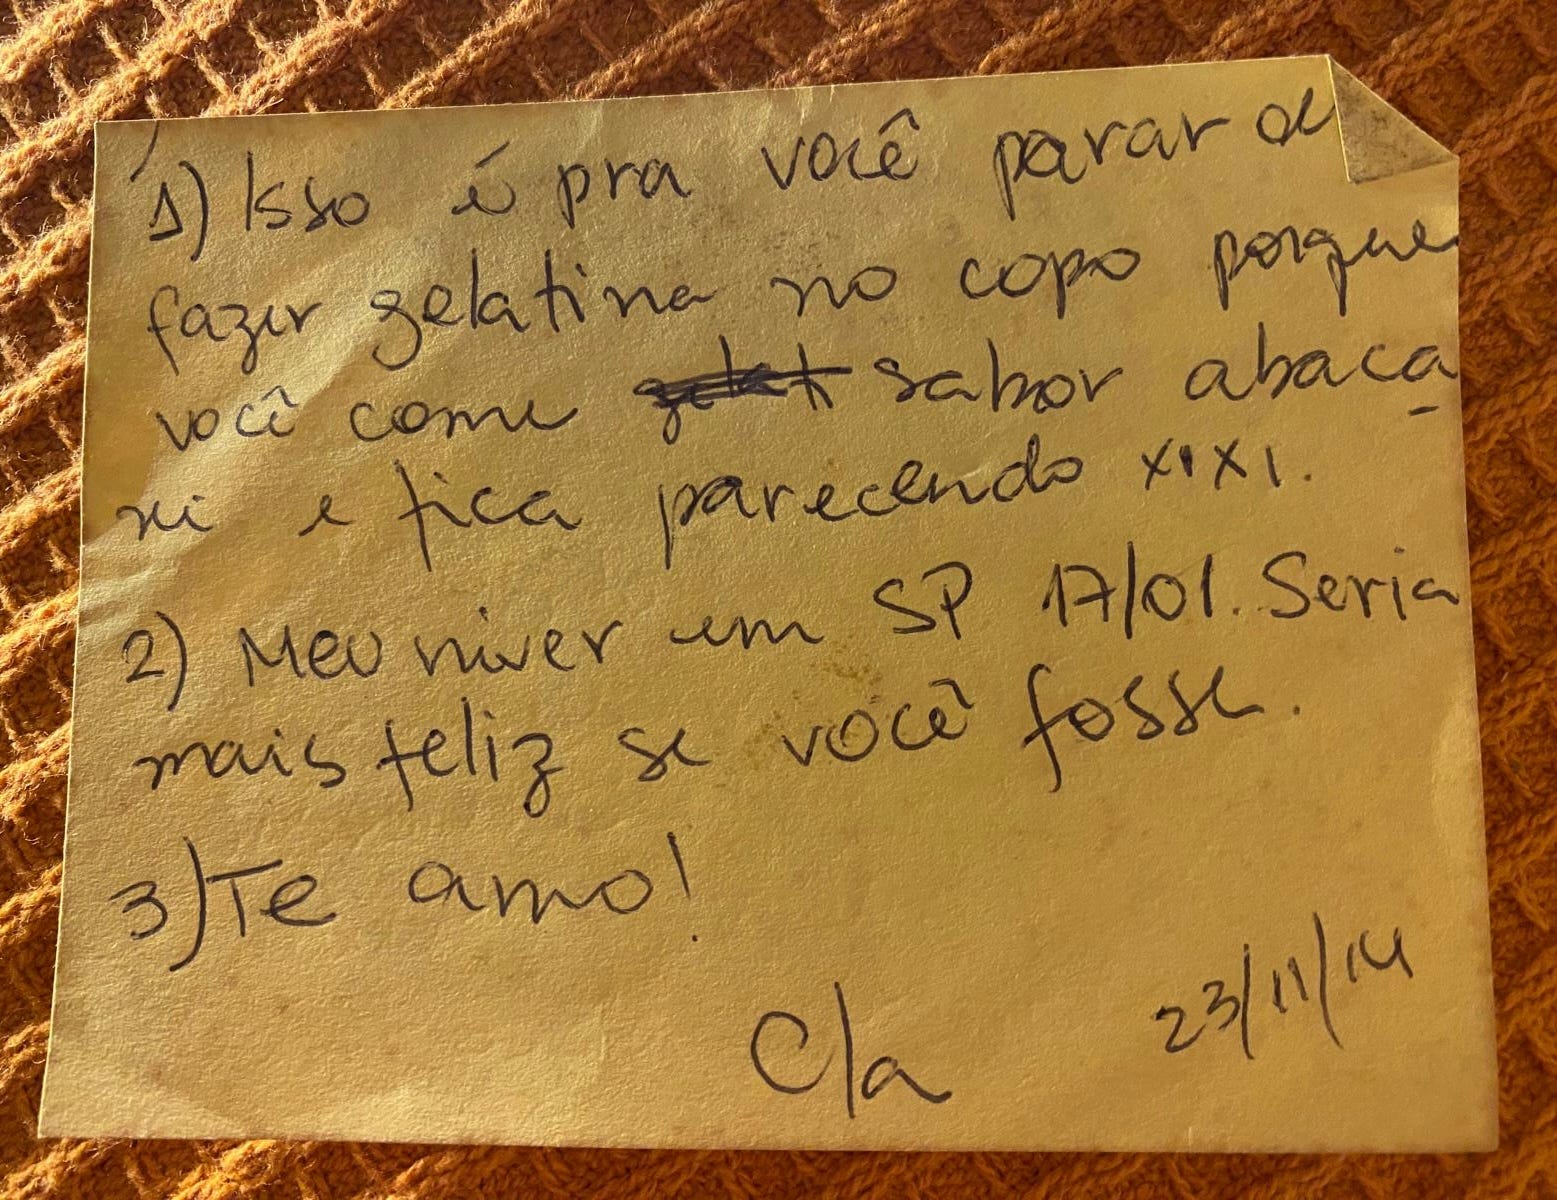 1) Isso é pra você parar de
fazer gelatina no copo porque
você come sabor abaca
xi e fica parecendo xixi.
2) Meu niver em SP 17/01. Seria
mais feliz se você fosse.
3) Te amo!
C/a 23/11/14